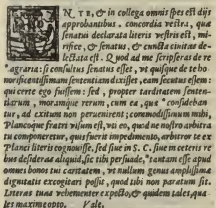 NTV, & in collega omnis spes est dijs
approbantibus. concordia vestra, qua
senatui declarata literis vestris est, mi-
rifice, & senatus, & cuncta ciuitas de-
lectata est. Quod ad me scripseras de re
agraria: si consultus senatus esset, vt quisque de te ho-
norificentissimam sententiam dixisset, eam secutus essem:
qui certe ego fuissem: sed, propter tarditatem senten-
tiarum, moramque rerum, cum ea, quæ consuleban
tur, ad exitum non peruenirent; commodissimum mihi,
Plancoque fratri visum est, vti eo, quod ne nostro arbitra
tu componeretur, quis fuerit impedimento, arbitror te ex
Planci literis cognouisse. sed siue in S. C. siue in ceteris re
bus desideras aliquid, sic tibi persuade, tantam esse apud
omnes bonos tui caritatem, vt nullum genus amplissimæ
dignitatis excogitari possit, quod tibi non paratum sit.
Literas tuas vehementer expecto, & quidem tales, qua
les maxime opto. Vale.